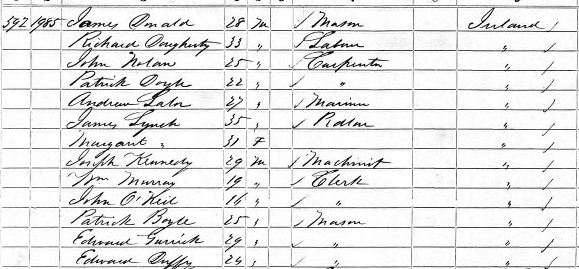 592 1985 James Donald 28 M / Mason Ireland /
Richard Daugherty 33 " / Labour " /
John Nolan 25 " / Carpenter " /
Patrick Doyle 22 " / " " /
Andrew Lalor 27 " / Marine " /
James Lynch 35 " / Pedlar " /
Margaret " 31 F " /
Joseph Kennedy 29 M / Machinist " /
Wm Murray 19 " / Clerk " /
John O'Neil 16 " / " " /
Patrick Boyle 25 " / Mason " /
Edward Garrick 29 " / " " /
Edward Duffy 24 " / " " /